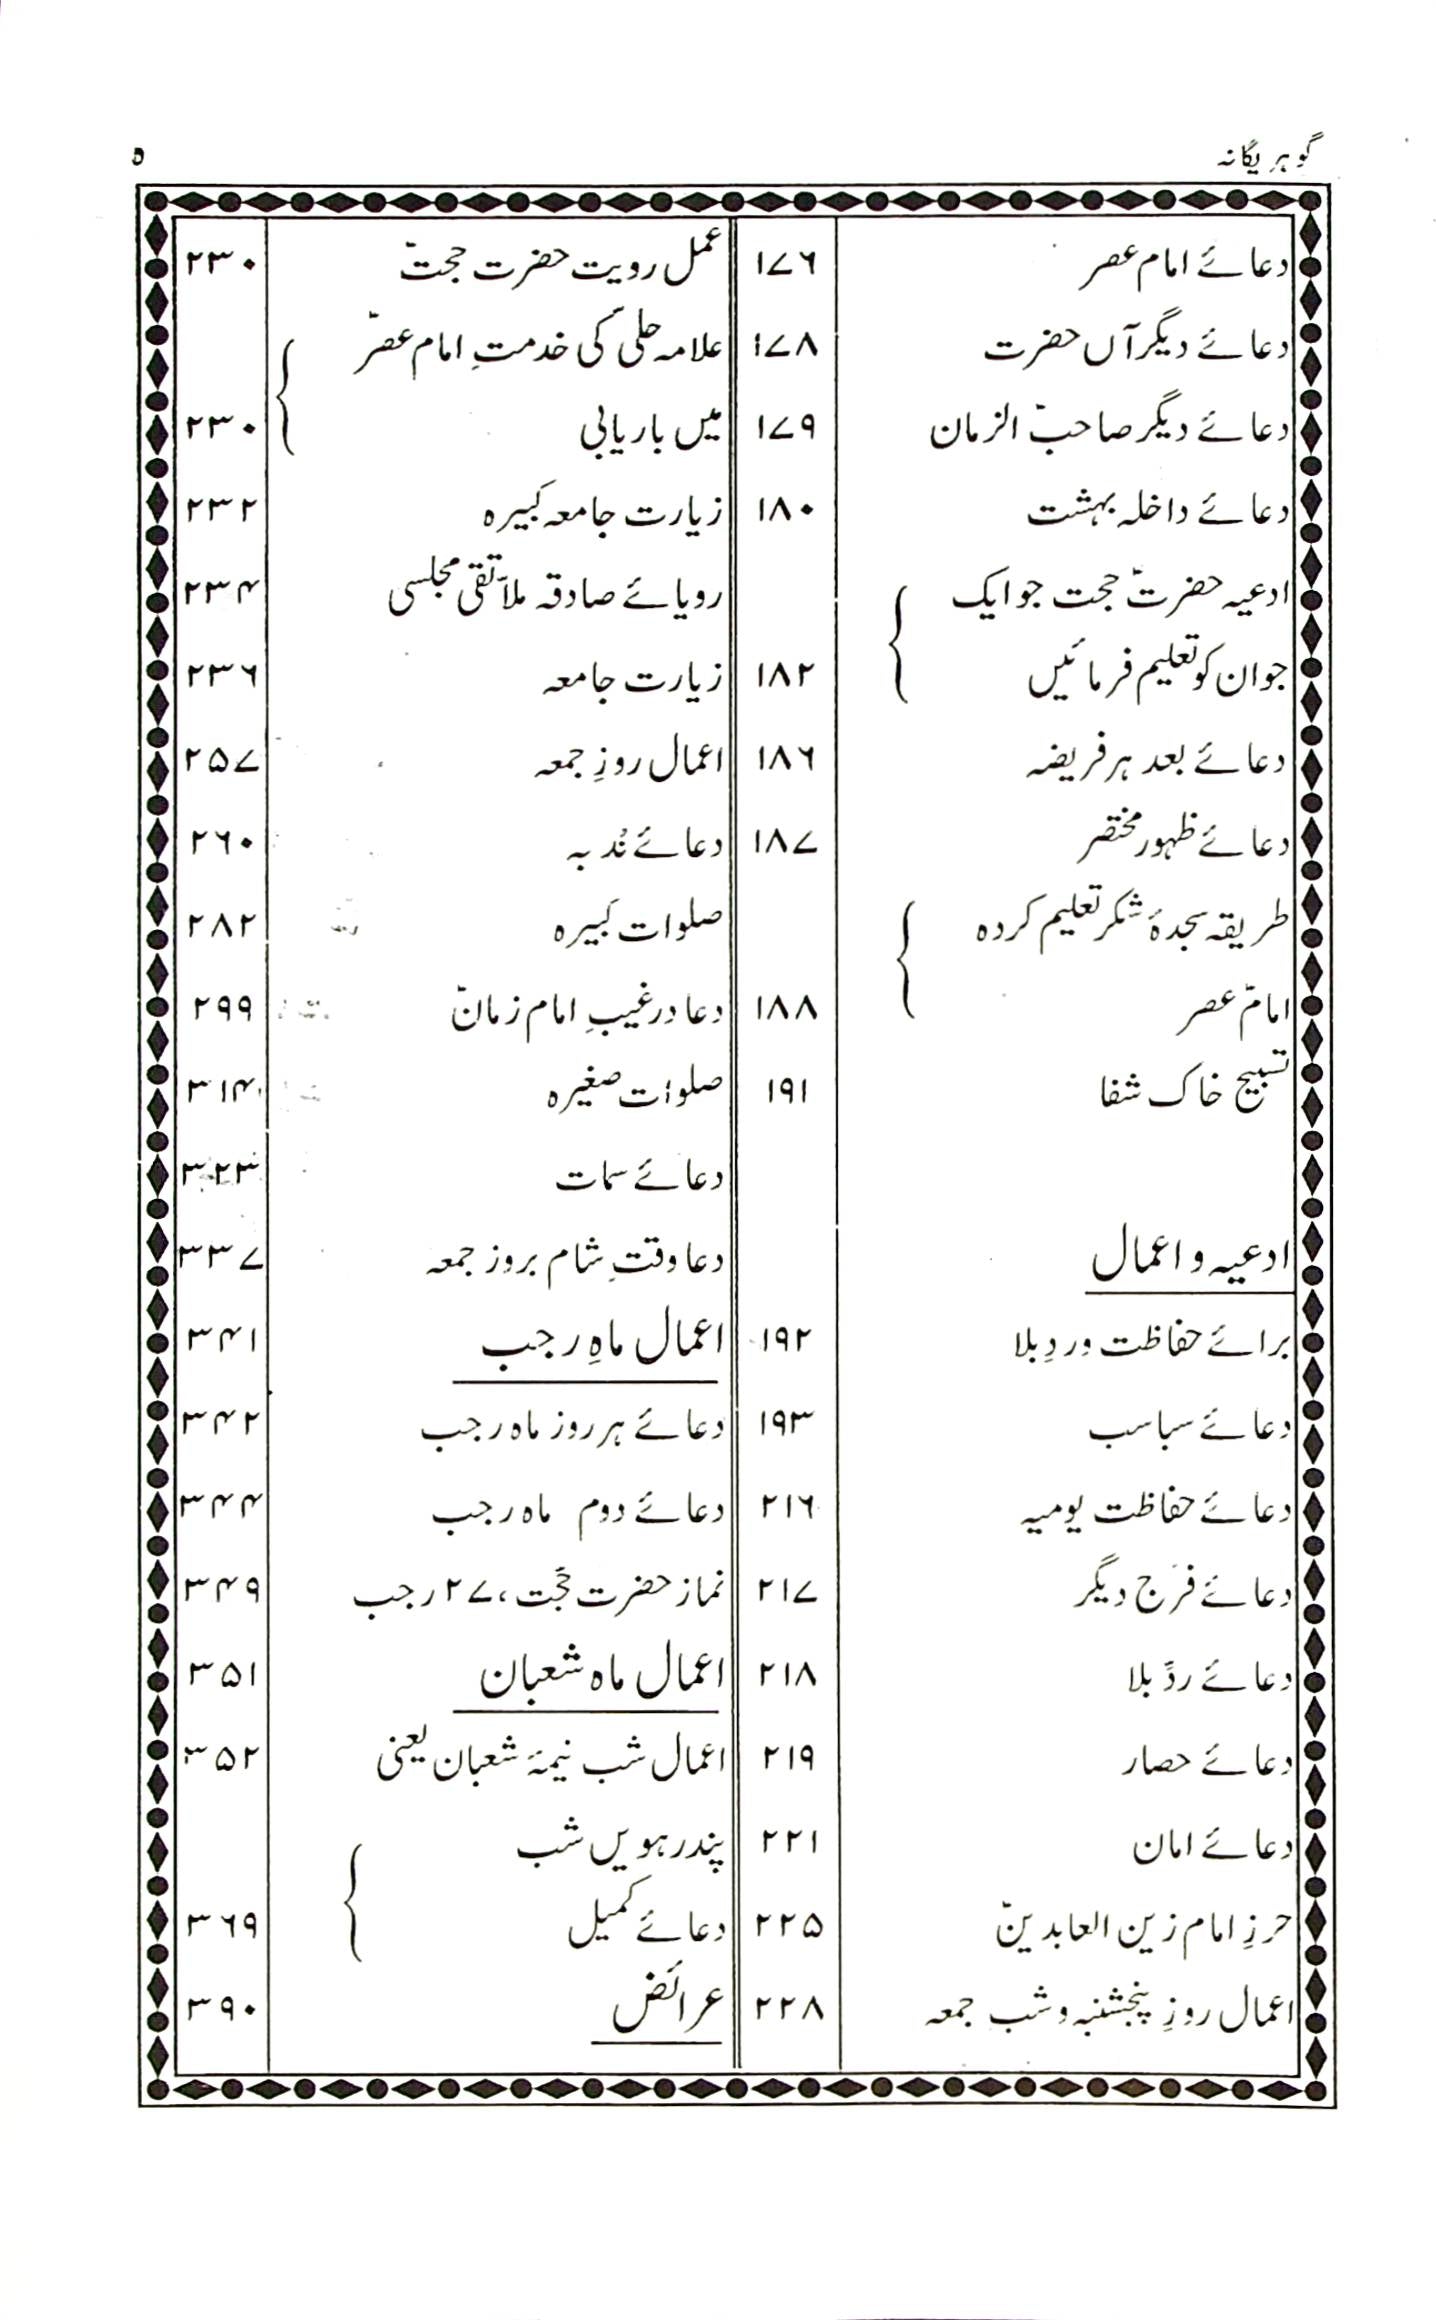 گوہر یگانہ ۵
دعائے امام عصر ۱۷۶
دعائے دیگر آں حضرت ۱۷۸
دعائے دیگر صاحبؑ الزمان ۱۷۹
دعائے داخلہ بہشت ۱۸۰
ادعیہ حضرتؑ حجت جو ایک
جوان کو تعلیم فرمائیں ۱۸۲
دعائے بعد ہر فریضہ ۱۸۶
دعائے ظہور مختصر ۱۸۷
طریقہ سجدۂ شکر تعلیم کردہ
امامؑ عصر ۱۸۸
تسبیح خاک شفا ۱۹۱
ادعیہ و اعمال
برائے حفاظت و ردِ بلا ۱۹۲
دعائے سباسب ۱۹۳
دعائے حفاظت یومیہ ۲۱۶
دعائے فرَج دیگر ۲۱۷
دعائے ردِّ بلا ۲۱۸
دعائے حصار ۲۱۹
دعائے امان ۲۲۱
حرزِ امام زین العابدینؑ ۲۲۵
اعمال روزِ پنجشنبہ و شب جمعہ ۲۲۸
عمل رویت حضرت حجتؑ ۲۳۰
علامہ حلیؒ کی خدمتِ امام عصرؑ
میں باریابی ۲۳۰
زیارت جامعہ کبیرہ ۲۳۲
رویائے صادقہ ملاّ تقی مجلسی ۲۳۴
زیارت جامعہ ۲۳۶
اعمال روزِ جمعہ ۲۵۷
دعائے نُدبہ ۲۶۰
صلوات کبیرہ ۲۸۲
دعا در غیبِ امام زمانؑ ۲۹۹
صلوات صغیرہ ۳۱۴
دعائے سمات ۳۲۳
دعا وقتِ شام بروز جمعہ ۳۳۷
اعمال ماہِ رجب ۳۴۱
دعائے ہر روز ماہ رجب ۳۴۲
دعائے دوم ماہ رجب ۳۴۴
نماز حضرت حجّت، ۲۷ رجب ۳۴۹
اعمال ماہ شعبان ۳۵۱
اعمال شب نیمۂ شعبان یعنی ۳۵۲
پندرہویں شب
دعائے کمیل ۳۶۹
عرائض ۳۹۰